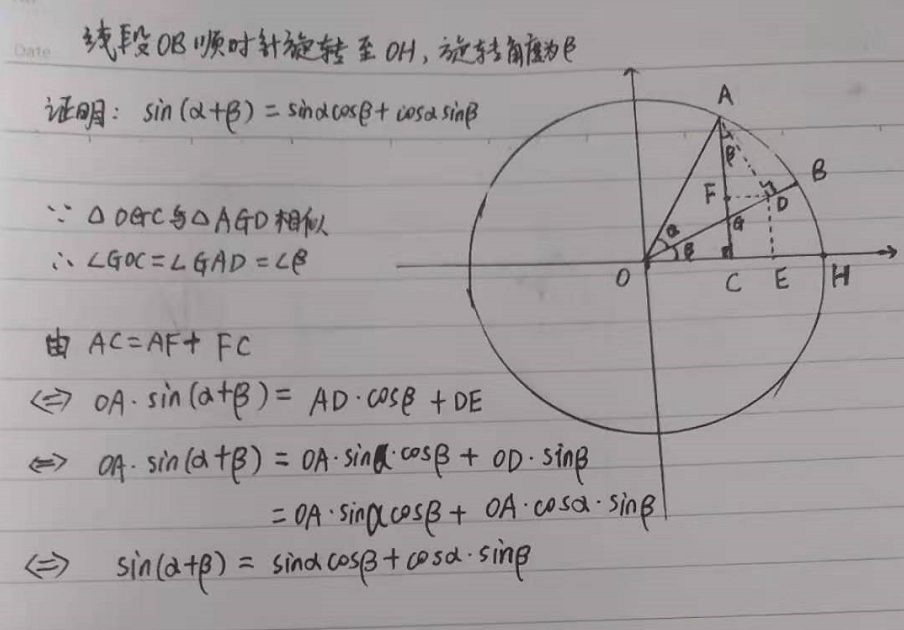 Date
线段OB顺时针旋转至OH,旋转角度为β
证明: sin(α+β)=sinαcosβ+cosαsinβ
∵ △OGC与△AGD相似
∴ ∠GOC=∠GAD=∠β
由 AC=AF+FC
<=> OA·sin(α+β)= AD·cosβ+DE
<=> OA·sin(α+β)= OA·sinα·cosβ+ OD·sinβ
=OA·sinαcosβ+ OA·cosα·sinβ
<=> sin(α+β)= sinαcosβ+cosα·sinβ
A
β
B
F
D
G
α
β
O
C
E
H